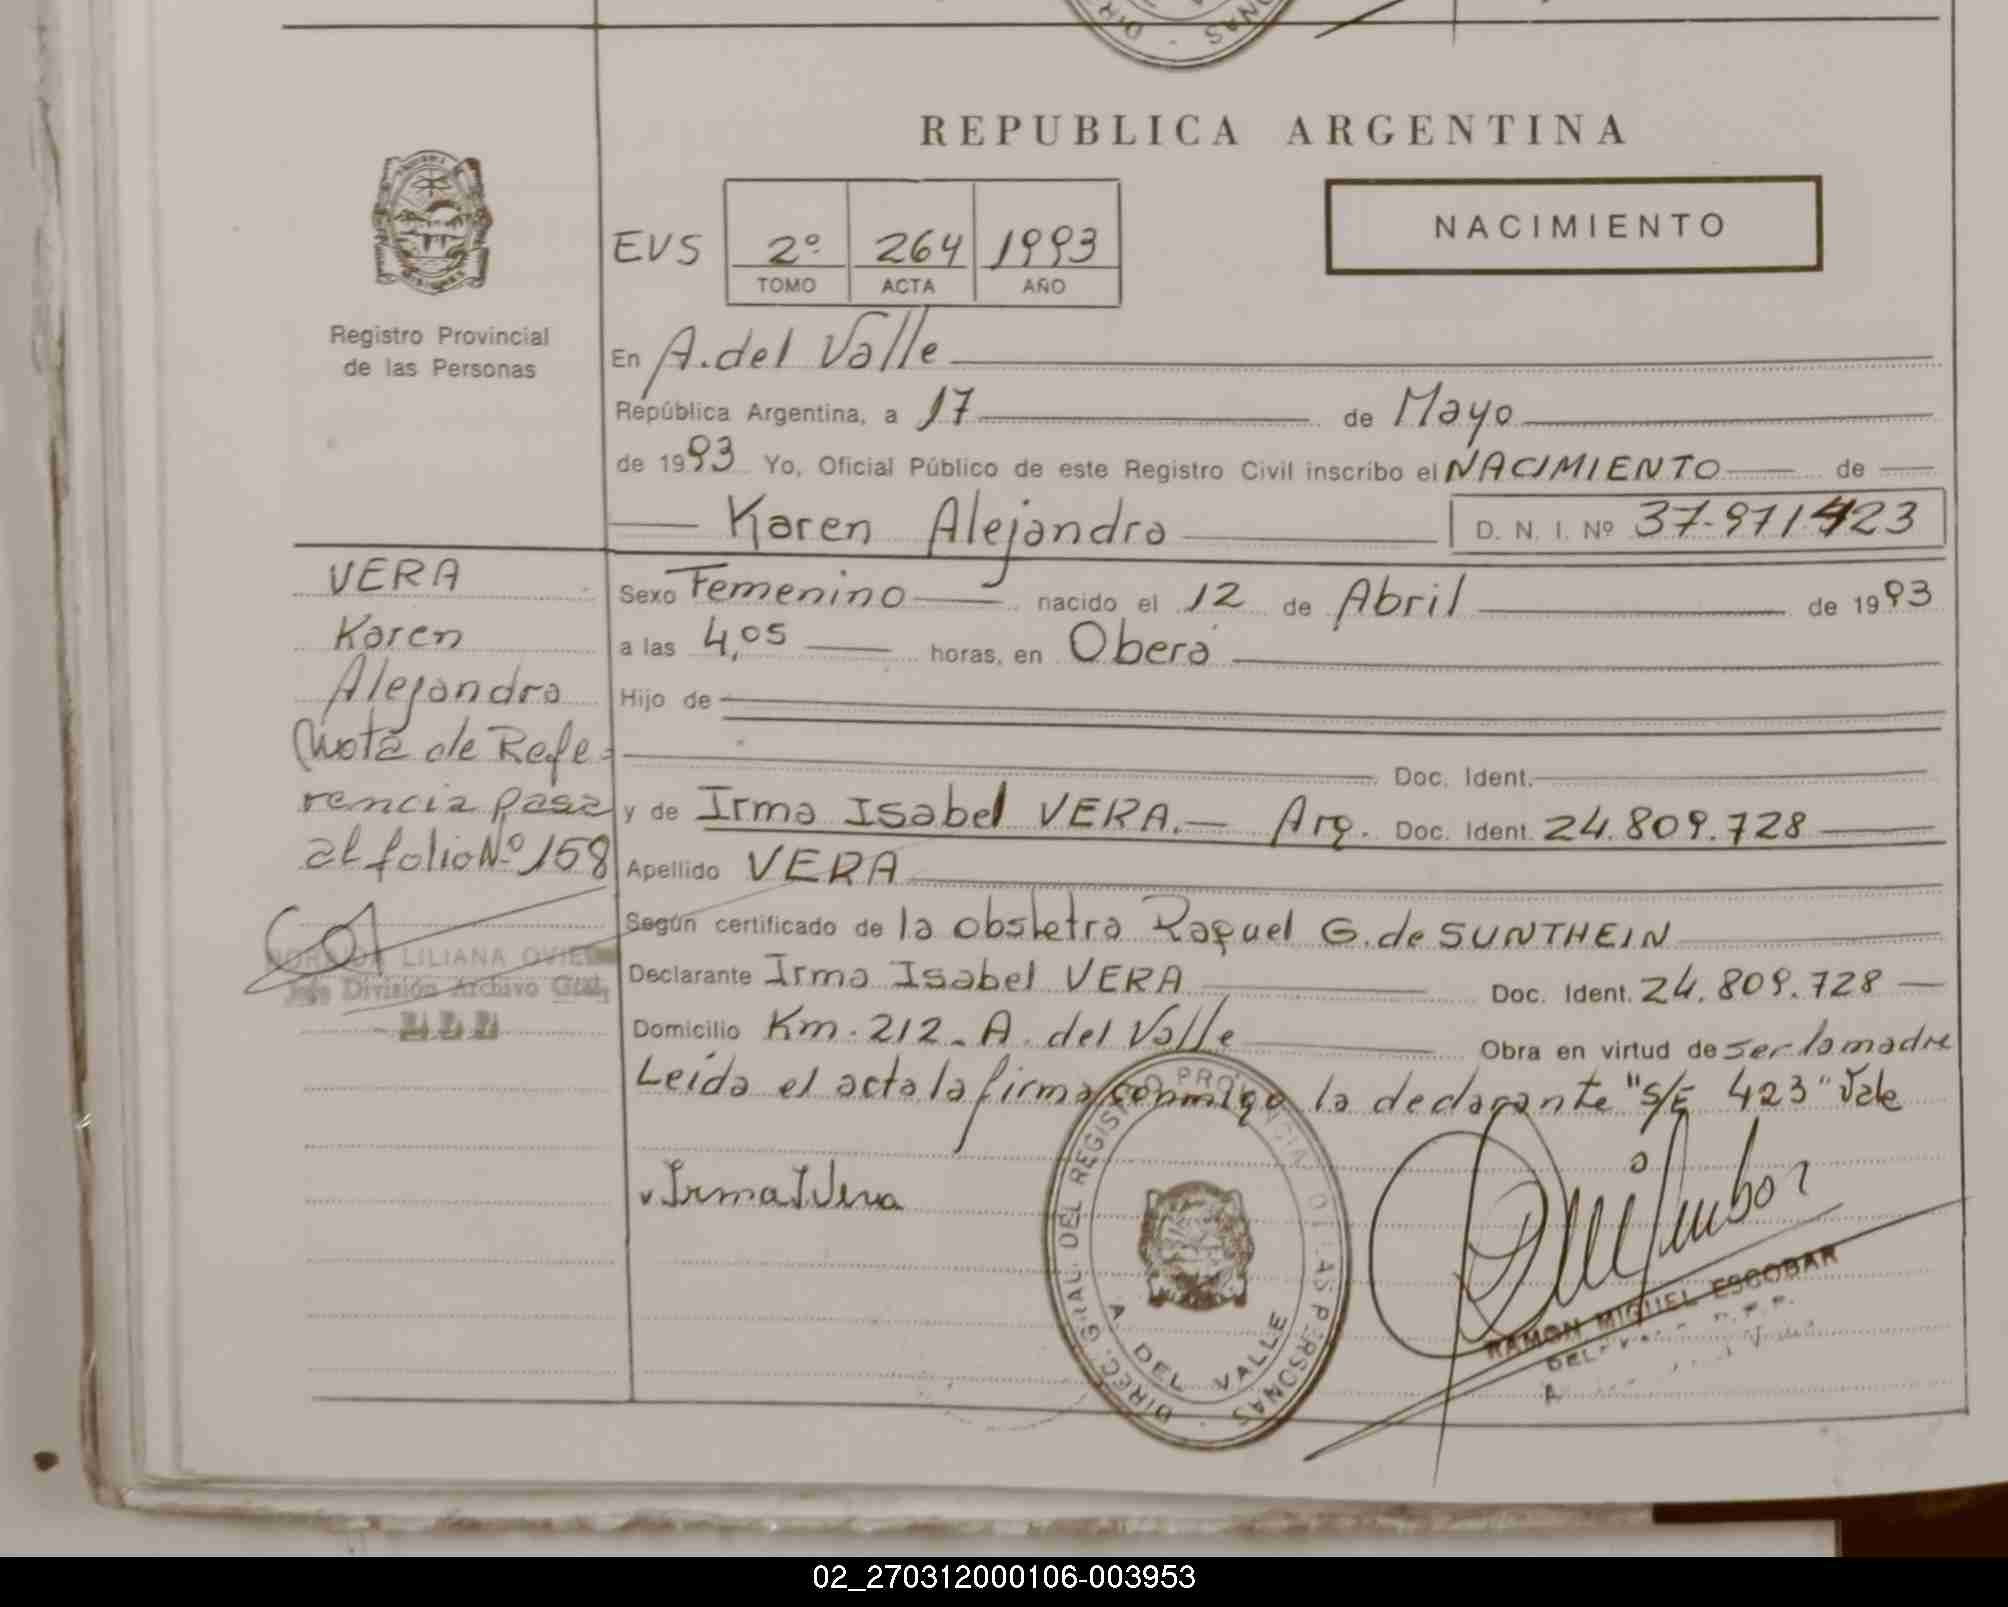 REPUBLICA ARGENTINA
NACIMIENTO
EVS 2º 264 1993
TOMO ACTA AÑO
Registro Provincial
de las Personas
En A. del Valle
República Argentina, a 17 de Mayo
de 1993 Yo, Oficial Público de este Registro Civil inscribo el NACIMIENTO de
Karen Alejandra D. N. I. Nº 37.971.423
VERA
Karen
Alejandra
Nota de Refe-
rencia pasa
al folio Nº 158
LILIANA
Jefe División Archivo Gral.
Sexo Femenino nacido el 12 de Abril de 1993
a las 4,05 horas, en Oberá
Hijo de
Doc. Ident.
y de Irma Isabel VERA.- Arg. Doc. Ident. 24.809.728
Apellido VERA
Según certificado de la obstetra Raquel G. de SUNTHEIN
Declarante Irma Isabel VERA Doc. Ident. 24.809.728
Domicilio Km. 212 - A. del Valle Obra en virtud de ser la madre
Leída el acta la firma conmigo la declarante "S/E 423" Vale
Irma I Vera
DIREC. GRAL. DEL REGISTRO PROVINCIAL DE LAS PERSONAS
A. DEL VALLE
RAMON MIGUEL ESCOBAR
02_270312000106-003953